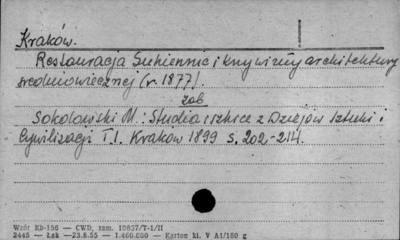 Kraków.
Restauracja Sukiennic i krzywizny architektury
średniowiecznej (r. 1877).
zob
Sokołowski M.: Studia i szkice z Dziejów sztuki i
Cywilizacji T. I. Kraków 1899 s. 202-214.
Wzór Kb-156 — CWD, zam. 10637/T-1/II
2445 — Łak —23.8.55 — 1.460.000 — Karton kl. V A1/180 g